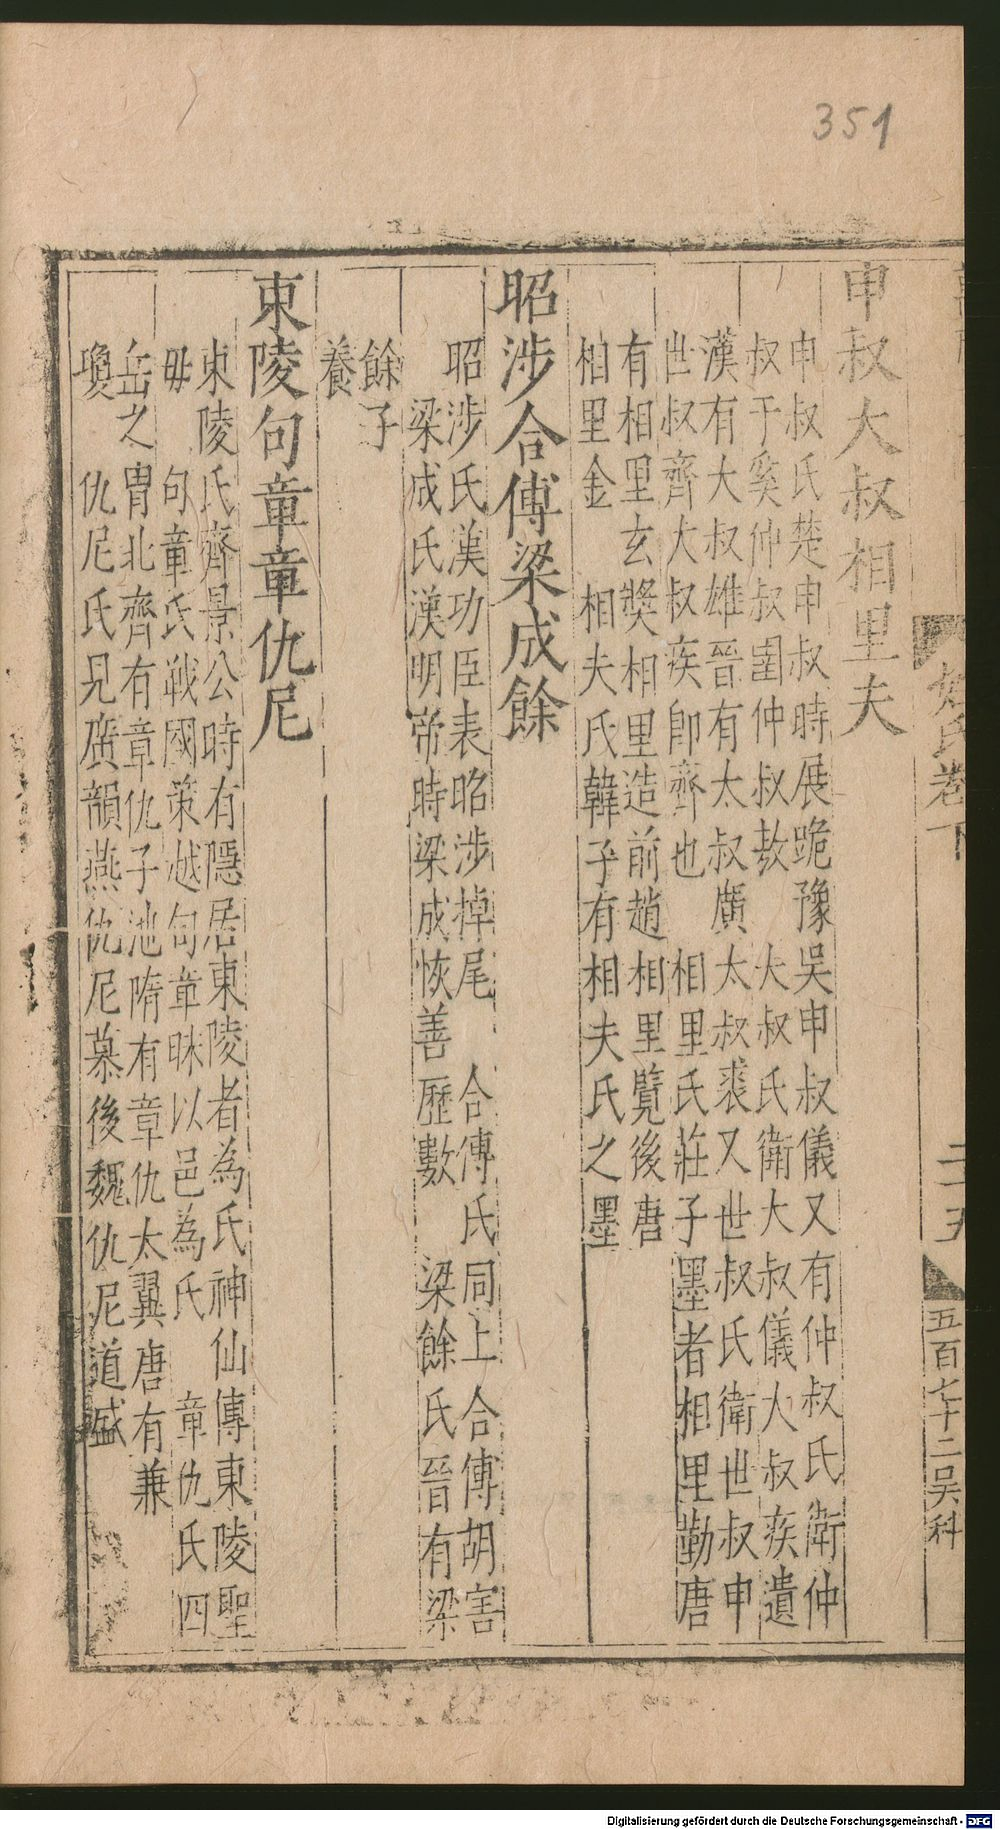 351
姓氏卷下
二十五
五百七十二吴科
申叔大叔相里夫
申叔氏楚申叔時展跪豫吳申叔儀又有仲叔氏衛仲
叔于奚仲叔圉仲叔敖 大叔氏衛大叔儀大叔疾遺
漢有大叔雄晉有太叔廣太叔裘又世叔氏衛世叔申
世叔齊大叔疾卽齊也 相里氏莊子墨者相里勤唐
有相里玄獎相里造前趙相里覽後唐
相里金 相夫氏韓子有相夫氏之墨
昭涉合傅梁成餘
昭涉氏漢功臣表昭涉掉尾 合傅氏同上合傅胡害
梁成氏漢明帝時梁成恢善歷數 梁餘氏晉有梁
餘子
養
東陵句章章仇尼
東陵氏齊景公時有隱居東陵者為氏神仙傳東陵聖
毋 句章氏戰國策越句章昧以邑為氏 章仇氏四
岳之胄北齊有章仇子池隋有章仇太翼唐有兼
瓊 仇尼氏見廣韻燕仇尼慕後魏仇尼道盛
Digitalisierung gefördert durch die Deutsche Forschungsgemeinschaft - DFG